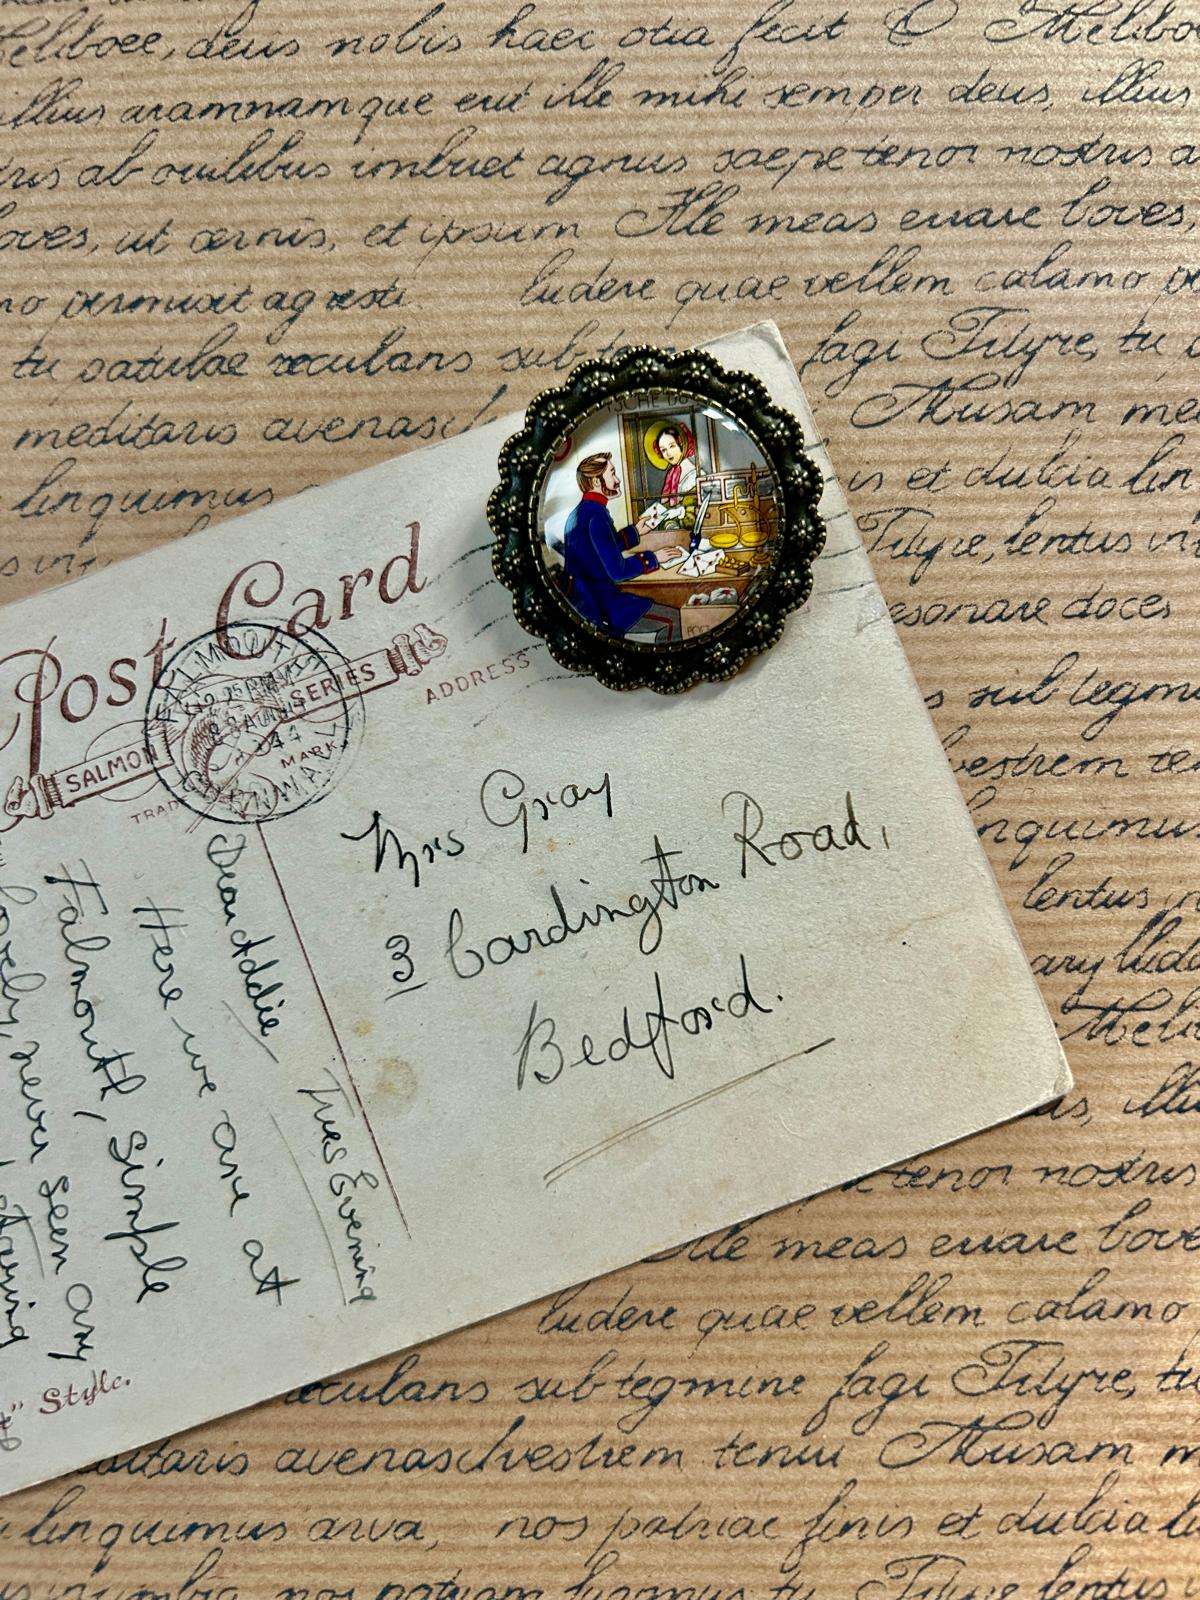 Meliboee, deus nobis haec otia fecit O Melibo
illius aramnamque erit ille mihi semper deus, illius
ris ab ovilibus imbuet agnus saepe tenor nostris a
oves, ut cernis, et ipsum Ille meas errare boves,
mo permisit agresti ludere quae vellem calamo pe
tu patulae recubans sub te fagi Tityre, tu p
meditaris avenas Musam me
linquimus is et dulcia lin
Tityre, lentus in
esonare doces
Post Card
SALMON SERIES
TRADE MARK
ADDRESS
FALMOUTH
CORNWALL
12.25 PM
44
s sub tegm
vestrem te
Mrs Gray
3 Cardington Road,
Bedford.
nquimus
lentus in
Tues Evening
Dear Addie
Here we are at
Falmouth, simple
lovely, never seen any
Style.
tenor nostris
Ille meas errare bove
ludere quae vellem calamo
ecubans sub tegmine fagi Tityre, tu
ditaris avenas lvestrem tenui Musam m
linquimus arva, nos patriae finis et dulcia li
nos patriam fugimus tu Tityre lentus i